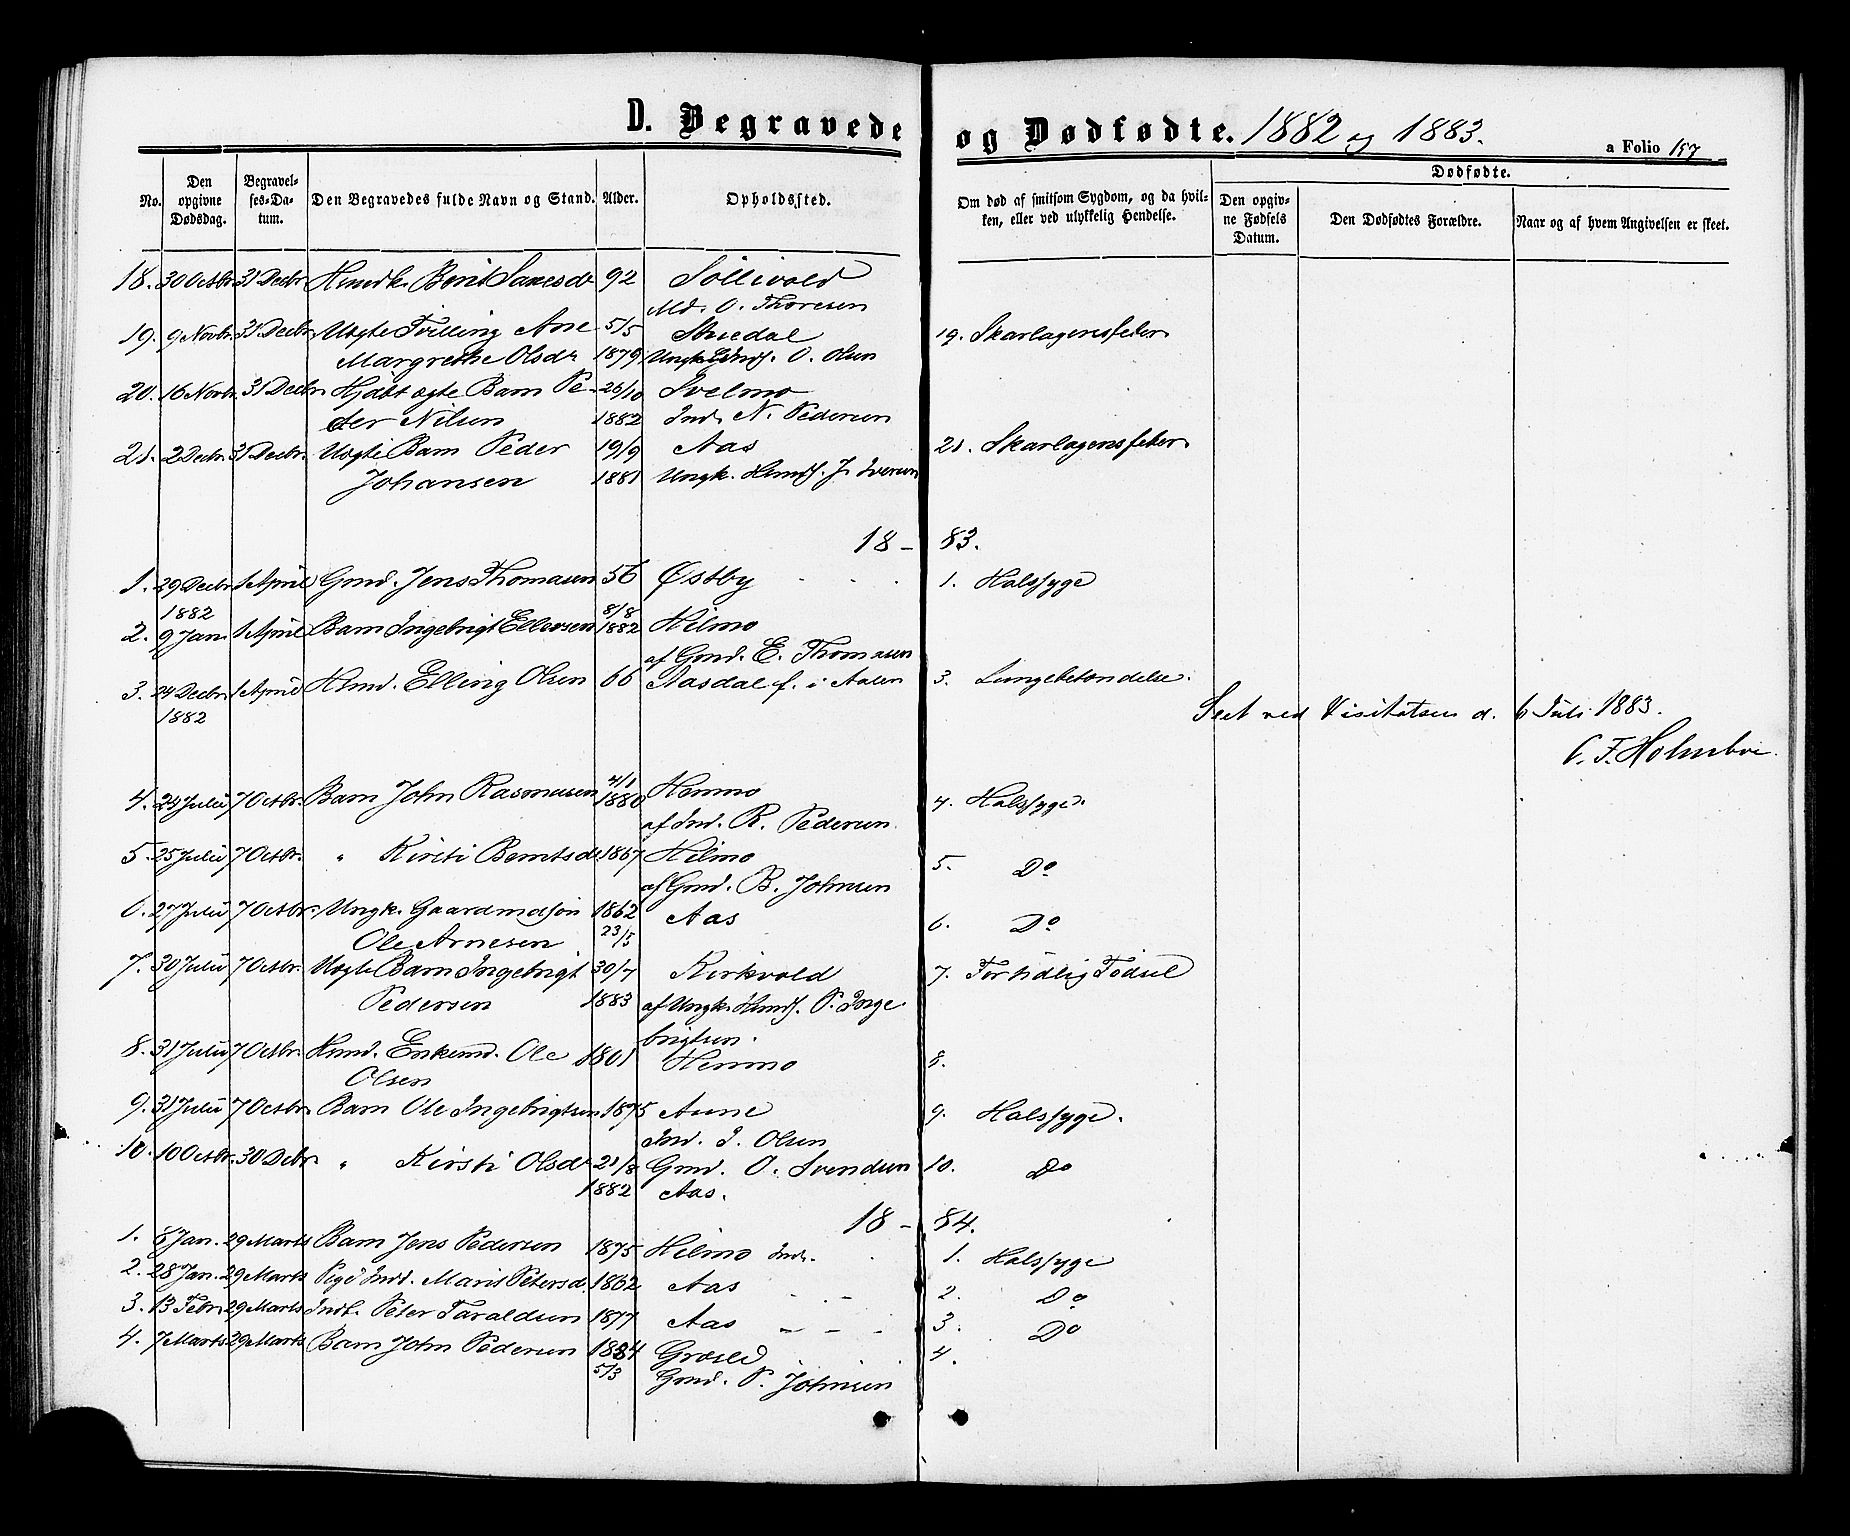 D. Begravede og Dødfødte. 1882 og 1883. a Folio 157
Dødfødte.
No. Den opgivne Dødsdag. Begravelses-Datum. Den Begravedes fulde Navn og Stand. Alder. Opholdssted. Om død af smitsom Sygdom, og da hvilken, eller ved ulykkelig Hendelse. Den opgivne Fødsels Datum. Den Dødfødtes Forældre. Naar og af hvem Angivelsen er skeet.
18. 30 Octbr. 31 Decbr. Berit 92 Sollivold
Md. O. Thoresen
19. 9 Novbr. 31 Decbr. Uægte Tvilling Ane 5/5 19. Skarlagensfeber
Margrethe Olsdr 1879 Ungk. O. Olsen
20. 16 Novbr. 31 Decbr. Hjdbt ægte Barn Pe- 26/10 Svelmo
der Nilsen 1882 Ind. N. Pedersen
21. 2 Decbr. 31 Decbr. Uægte Barn Peder 19/9 Aas 21. Skarlagensfeber
Johansen 1881 Ungk. Hmdf. J. Iversen
18 - 83.
1. 29 Decbr 1 April Gmd. Jens Thomasen 56 Østby 1. Halssyge
1882 8/8
2. 9 Jan. 1 April Barn Ingebrigt Ellevsen 1882 Hilmo
af Gmd. E. Thomasen
3. 24 Decbr. 1 April Hmd. Elling Olsen 66 Aasdal f. i Aalen 3. Lungebetændelse.
1882
Seet ved Visitatsen d. 6 Juli 1883.
C. F. Holmboe.
4. 24 Juli 7 Octbr. Barn John Rasmussen 4/1 1880 Hemmo 4. Halssyge.
af Ind. R. Pedersen.
5. 25 Juli 7 Octbr. " Kirsti Berntsdr 1867 Hilmo 5. Do
af Gmd. B. Johnsen
6. 27 Juli 7 Octbr. Ungk. Gaardmdsøn 1862 Aas 6. Do
Ole Arnesen 23/5
7. 30 Juli 7 Octbr. Uægte Barn Ingebrigt 30/7 Kirkvold 7. For tidlig Fødsel
Pedersen 1883 af Ungk. Hmdf. P. Inge-
brigtsen.
8. 31 Juli 7 Octbr. Hmd. Enkemd. Ole 1801 Hemmo 8.
Olsen
9. 31 Juli 7 Octbr. Barn Ole Ingebrigtsen 1875 Aune 9. Halssyge.
Ind. I. Olsen
10. 10 Octbr. 30 Debr. " Kirsti Olsdr 21/8 Gmd. O. Svendsen 10. Do
1882 Aas.
18 - 84.
1. 6 Jan. 29 Marts Barn Jens Pedersen 1875 Hilmo Ind. 1. Halssyge
2. 28 Jan. 29 Marts Pige Indt. Marit Petersd. 1862 Aas 2. Do
3. 13 Febr. 29 Marts Indt. Peter Taraldsen 1877 Aas 3. Do
4. 7 Marts 29 Marts Barn John Pedersen 1884 Græsli 4.
5/3 Gmd. P. Johnsen